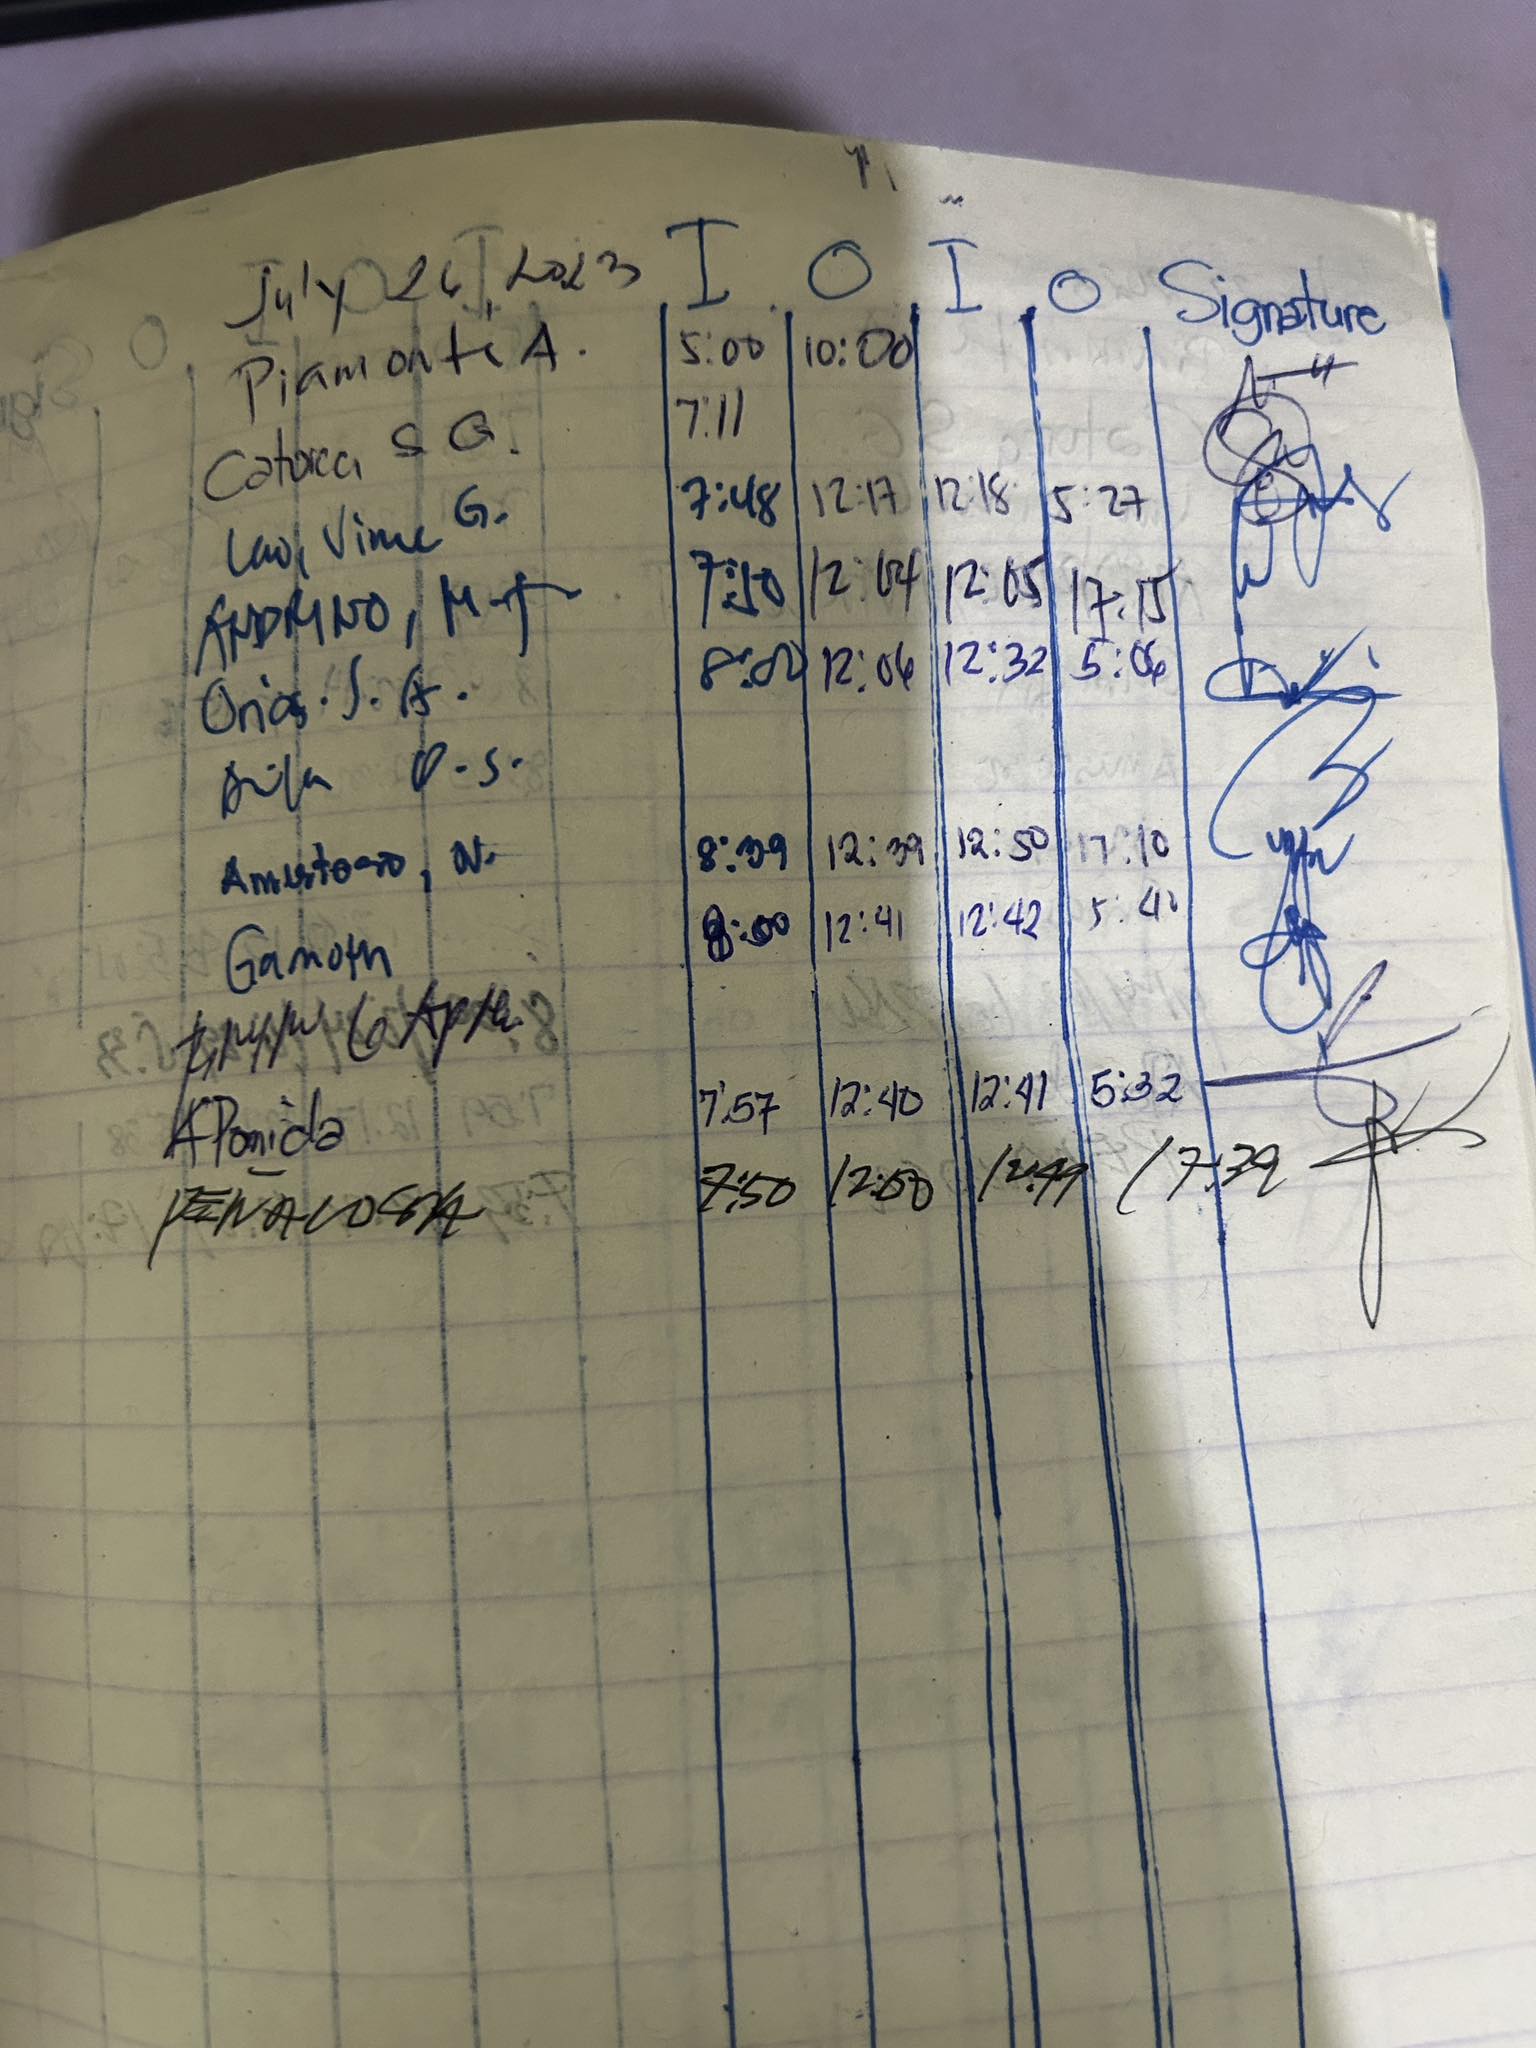 July 26, 2023 I O I O Signature
Piamonte A. 5:00 10:00
Catorce S G. 7:11
Lao, Vime G. 7:48 12:17 12:18 5:27
ANDRINO, M 7:50 12:04 12:05 17:15
Orias. J. A. 8:02 12:06 12:32 5:06
O.S.
N. 8:39 12:39 12:50 17:10
8:00 12:41 12:42 5:41
APonida 7:57 12:40 12:41 5:32
PENALOSA 7:50 12:00 12:49 17:39